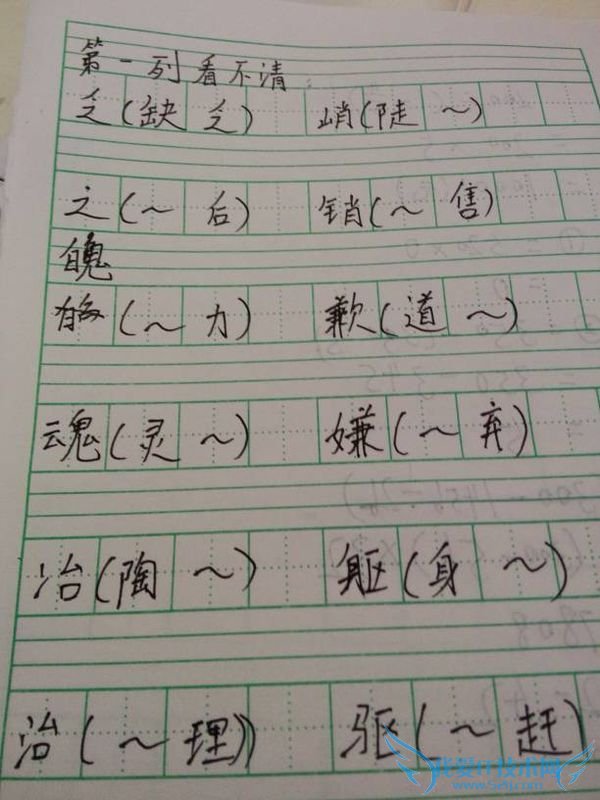 第一列看不清
乏(缺乏) 峭(陡~)
之(~后) 销(~售)
(~力) 歉(道~)
魂(灵~) 嫌(~弃)
冶(陶~) 躯(身~)
治(~理) 驱(~赶)